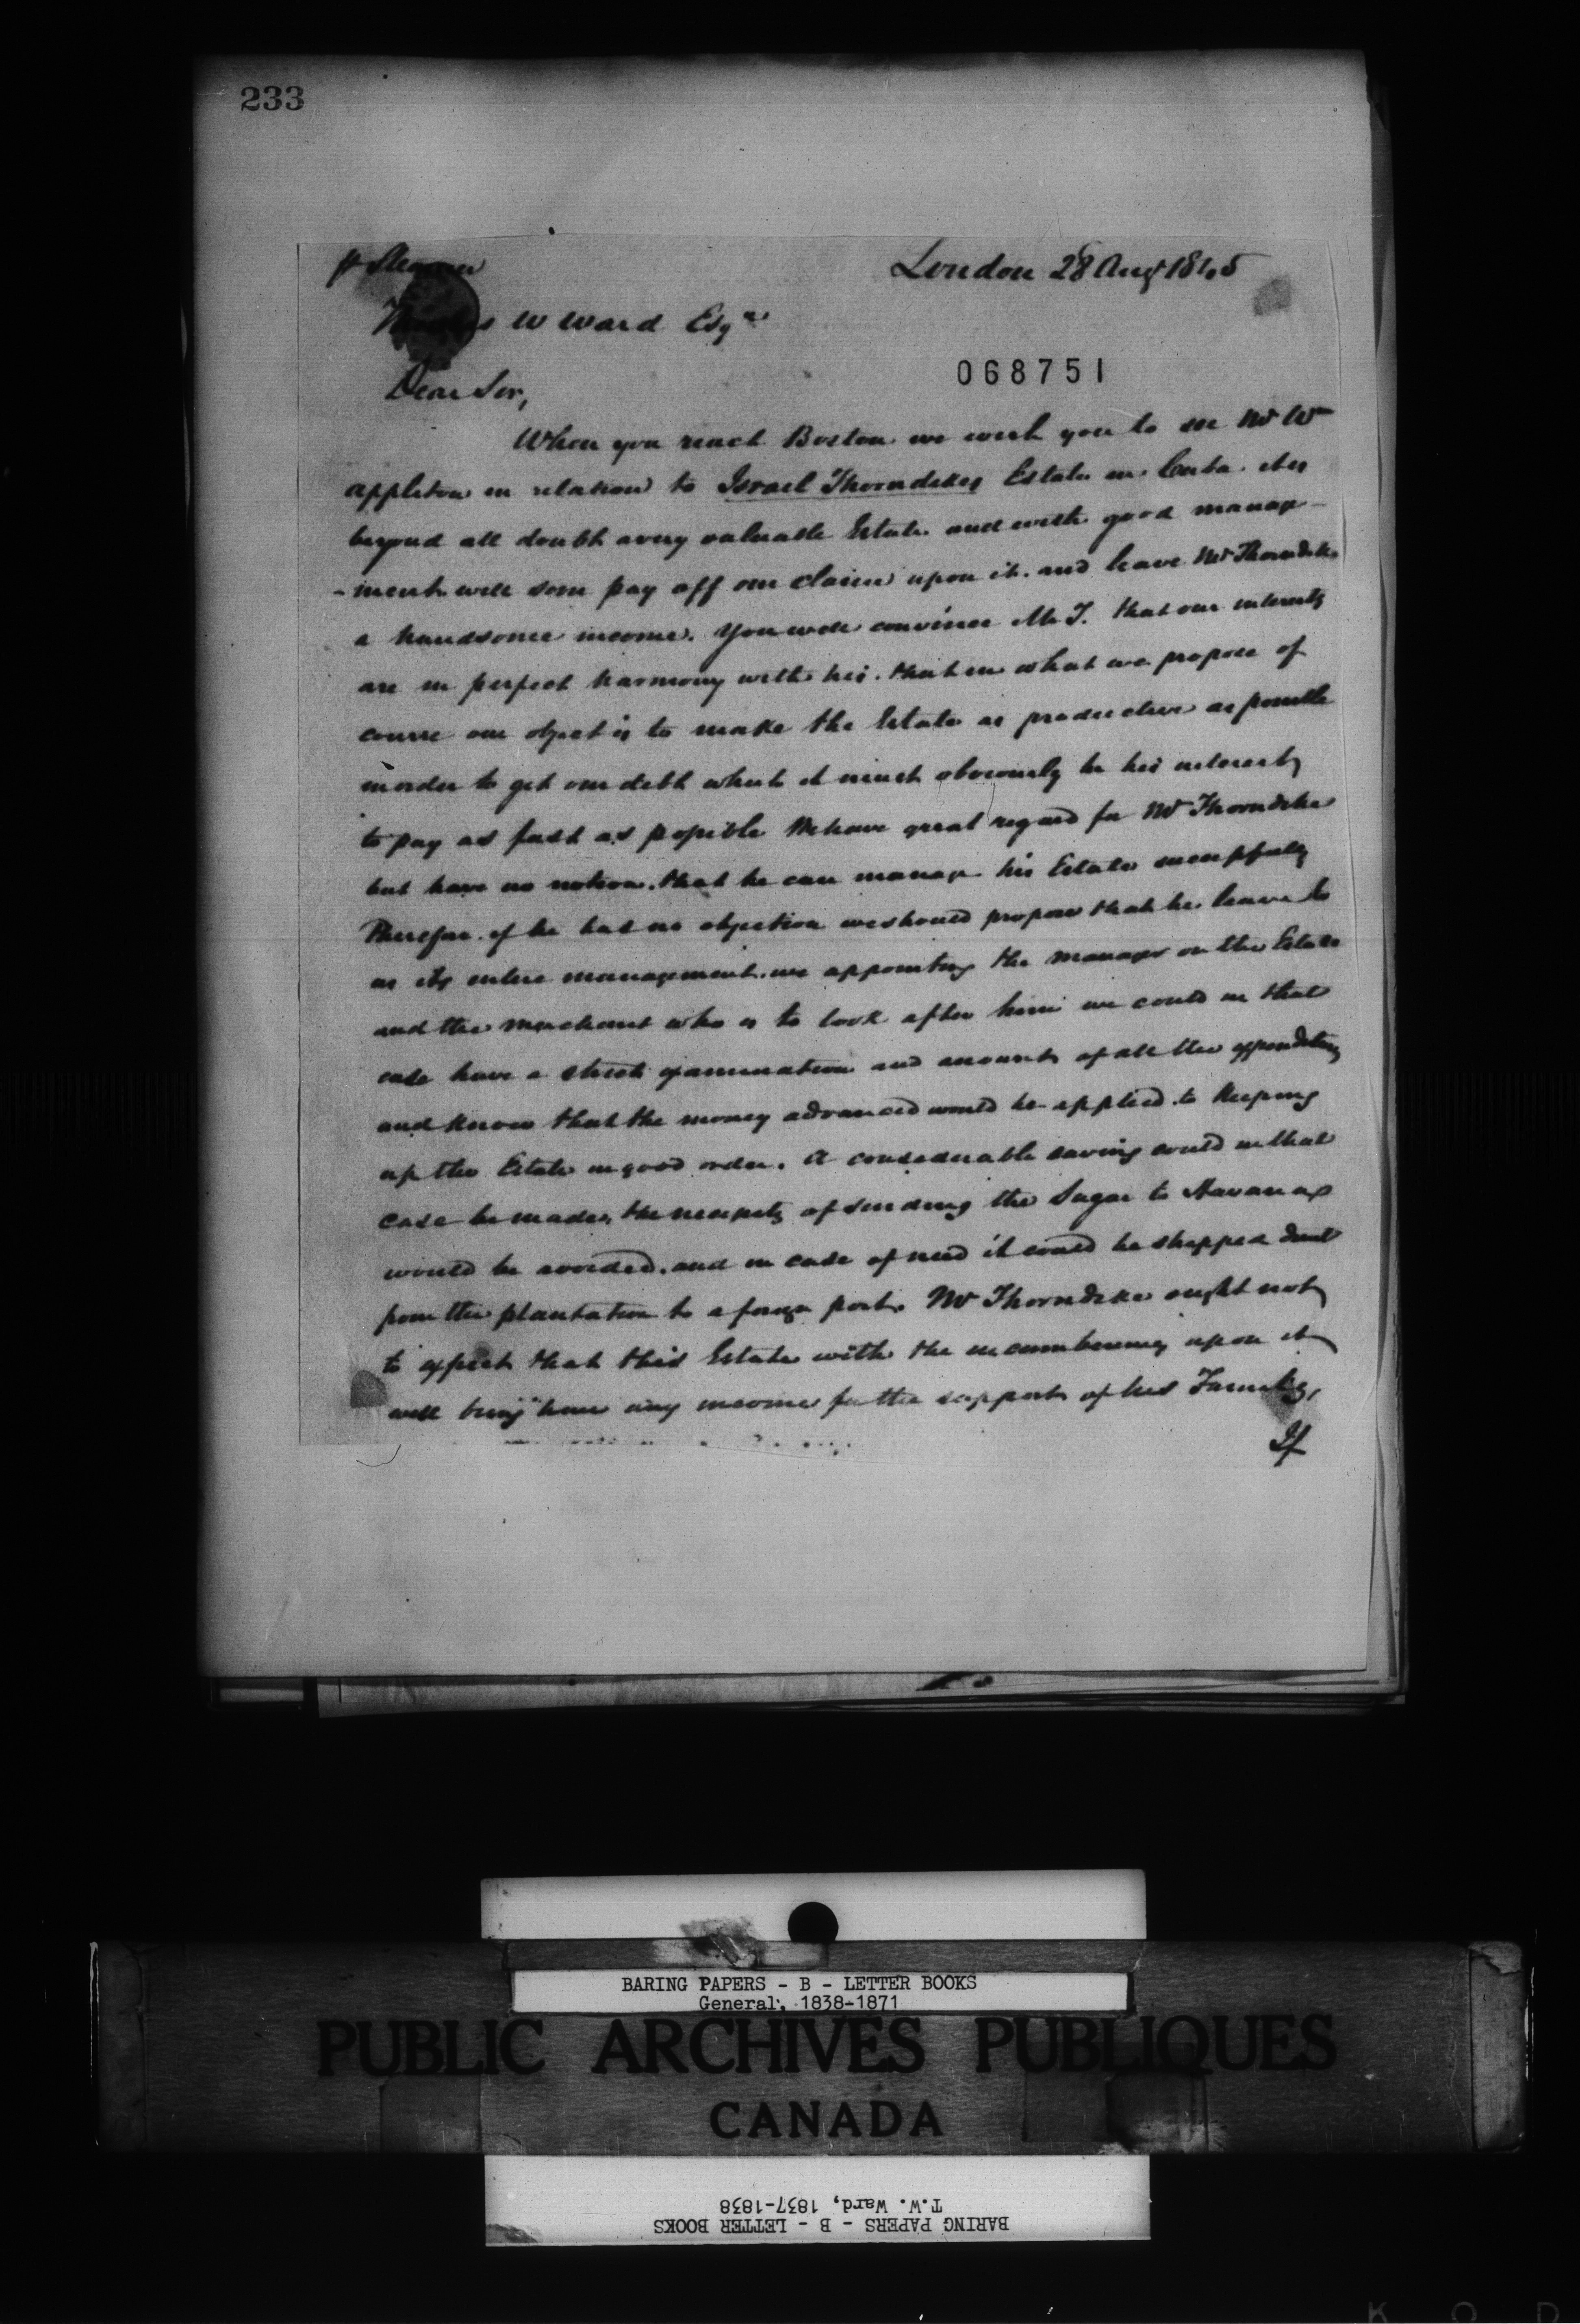 233
p Steamer London 28 Augt 1845
Thomas W Ward Esqre
068751
Dear Sir,
When you reach Boston we wish you to see Mr Wm
appleton in relation to Israel Thorndikes Estate in Cuba. it is
beyond all doubt a very valuable Estate and with good manage-
-ment will soon pay off our claim upon it. and leave Mr Thorndike
a handsome income. You will convince Mr T. that our interests
are in perfect harmony with his. that in what we propose of
course our object is to make the Estate as productive as possible
in order to get our debt which it must obviously be his interest
to pay as fast as possible We have great regard for Mr Thorndike
but have no notion that he can manage his Estate successfully
Therefore if he has no objection we should propose that he leave to
us its entire management. we appointing the manager on the Estate
and the merchant who is to look after him we could in that
case have a strict examination and accounts of all the expenditure
and know that the money advanced would be applied to keeping
up the Estate in good order. A considerable saving could in that
case be made, the necessity of sending the Sugar to Havana
would be avoided. and in case of need it could be shipped direct
from the plantation to a foreign port. Mr Thorndike ought not
to expect that this Estate with the incumbrances upon it
will bring him any income for the support of his Family,
If
BARING PAPERS - B - LETTER BOOKS
General, 1838-1871
PUBLIC ARCHIVES PUBLIQUES
CANADA
BARING PAPERS - B - LETTER BOOKS
T.W. Ward, 1837-1838
K O D